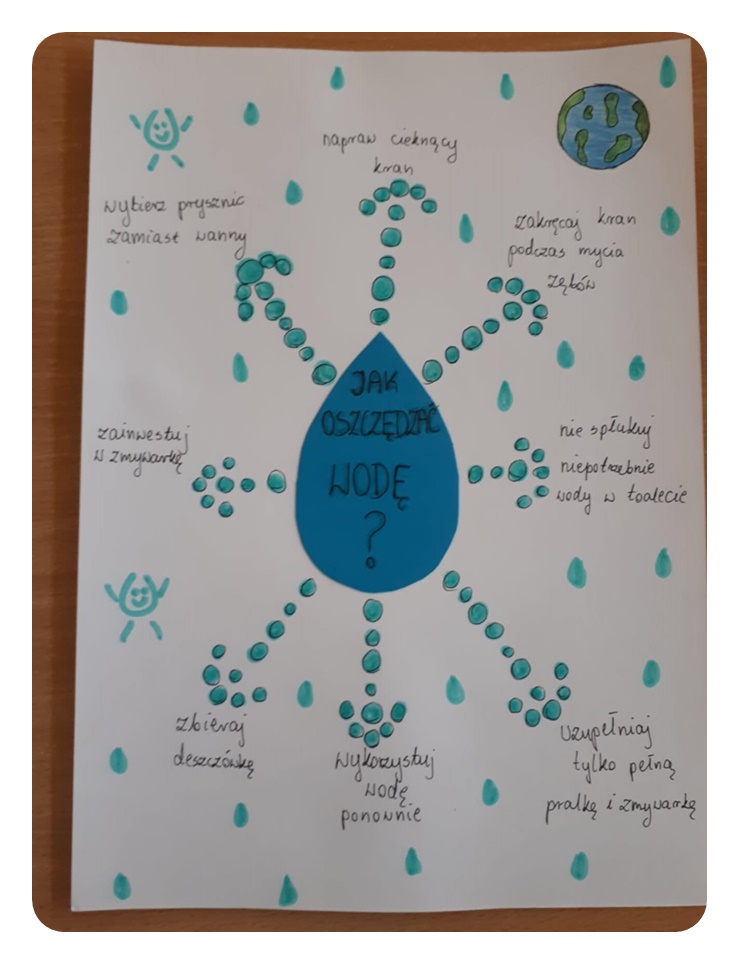 JAK
OSZCZĘDZAĆ
WODĘ
?
napraw cieknący
kran
zakręcaj kran
podczas mycia
zębów
nie spłukuj
niepotrzebnie
wody w toalecie
Uzupełniaj
tylko pełną
pralkę i zmywarkę
Wykorzystuj
wodę
ponownie
zbieraj
deszczówkę
zainwestuj
w zmywarkę
wybierz prysznic
zamiast wanny